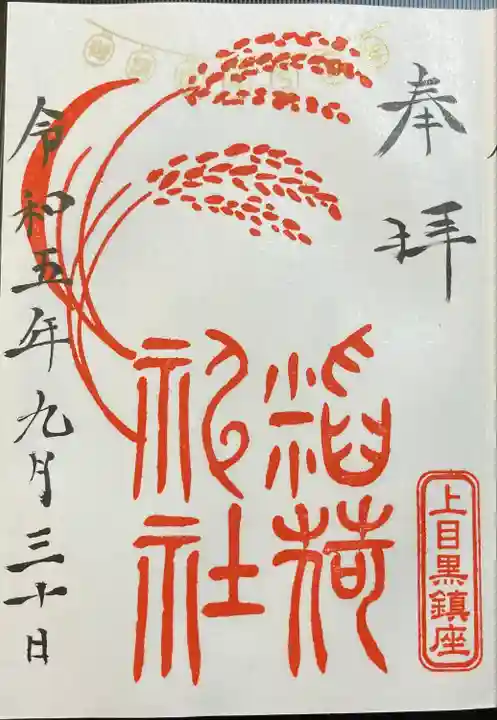 奉拝
上目黒鎮座
稲荷
神社
令和五年九月三十日